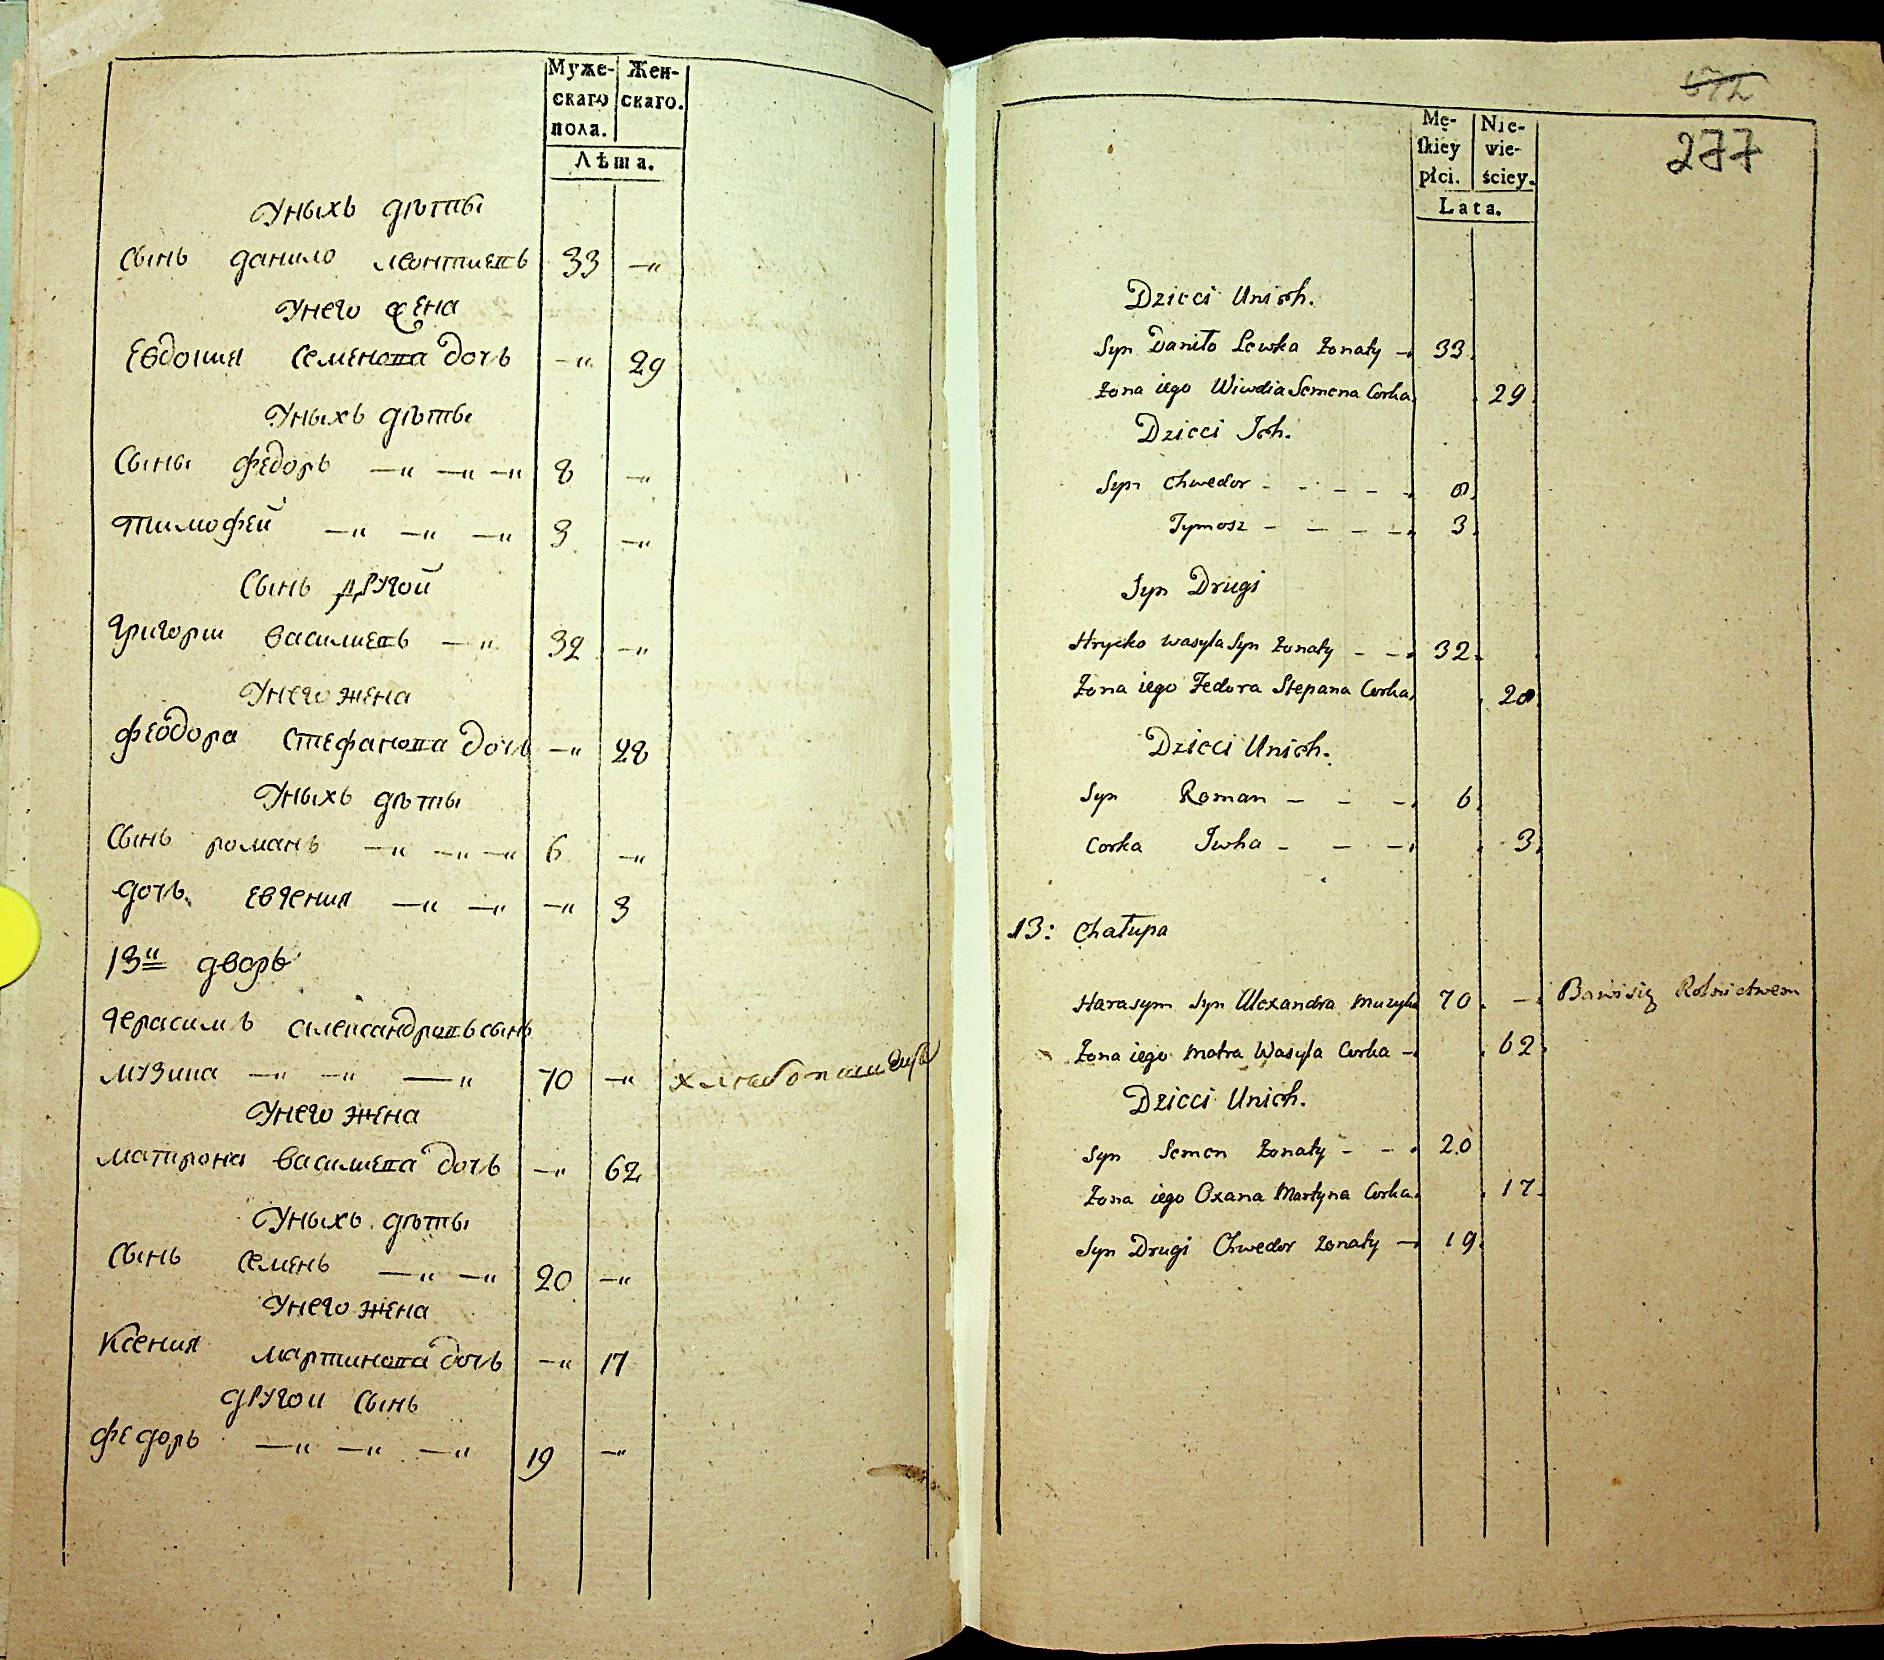 Муже-
скаго
пола.
Жен-
скаго.
Лѣта.
Уныхъ дѣти
Сынъ данило леонтиевъ 33 —„
Унего жена
Евдокия Семенова дочь —„ 29
Уныхъ дѣты
Сыны федоръ —„ —„ —„ 8 —„
тимофей —„ —„ —„ 3 —„
Сынъ другой
григории василиевъ —„ 32 —„
Унего жена
феодора Стефанова дочь —„ 28
Уныхъ дѣты
Сынъ романъ —„ —„ —„ 6 —„
дочь евгения —„ —„ —„ 3
13„ дворъ
герасимъ александровъ сынъ
музика —„ —„ —„ 70 —„ хлѣбопашецъ
Унего жена
матрона василиева дочь —„ 62
Уныхъ дѣты
Сынъ семенъ —„ —„ 20 —„
Унего жена
Ксения мартинова дочь —„ 17
другои сынъ
федоръ —„ —„ —„ 19 —„
672
277
Mę-
skiey
płci.
Nie-
wie-
ściey.
Lata.
Dzieci Unich.
Syn Daniło Lewka żonaty — 33
Żona iego Wiwdia Semena Corka 29
Dzieci Ich.
Syn Chwedor - - - - - 8
Tymosz - - - - 3
Syn Drugi
Hrycko Wasyla Syn żonaty - - 32
Żona iego Fedora Stepana Corka 28
Dzieci Unich.
Syn Roman - - - 6
Corka Iwha - - - 3
13: Chałupa
Harasym Syn Alexandra Muzyka 70 — Bawi się Rolnictwem
Żona iego Motra Wasyla Corka - 62
Dzieci Unich.
Syn Semen żonaty - - 20
Żona iego Oxana Martyna Corka 17
Syn Drugi Chwedor żonaty — 19